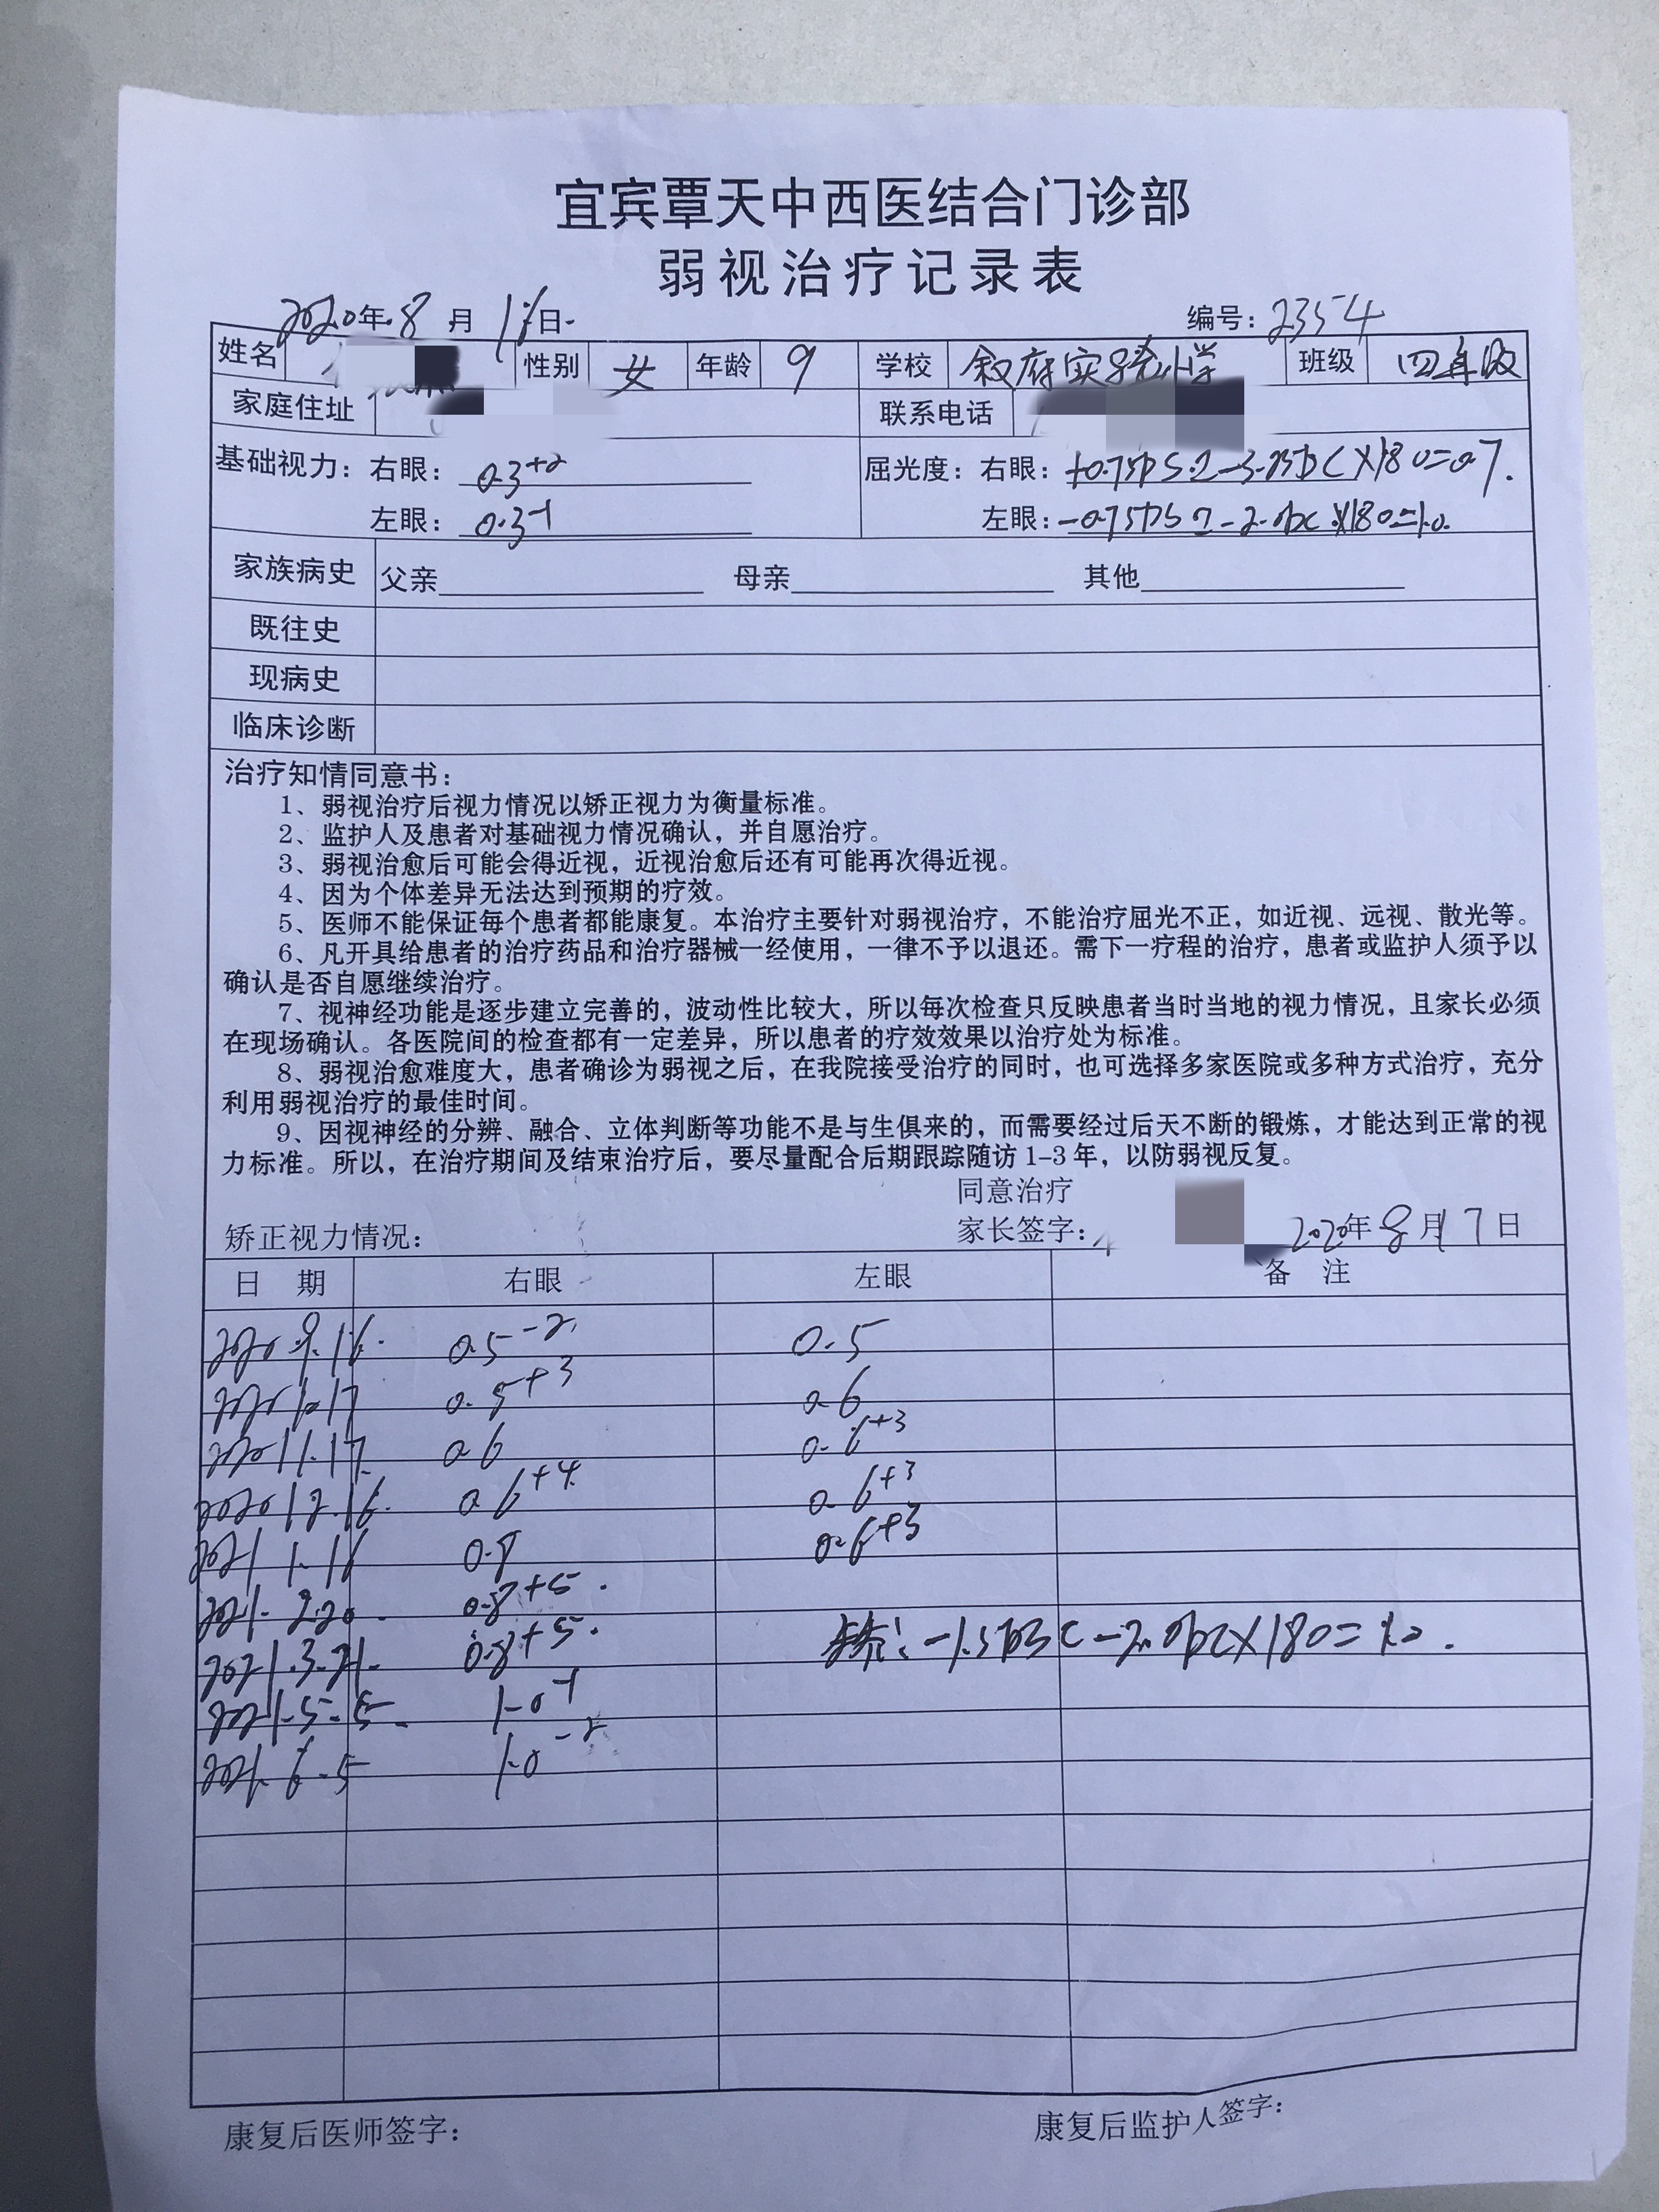 宜宾覃天中西医结合门诊部
弱视治疗记录表
2020年8月17日 编号：2354
姓名 性别 女 年龄 9 学校 叙府实验小学 班级 四年级
家庭住址 联系电话
基础视力：右眼：0.3+2 屈光度：右眼：+0.75DS -3.75DC×180=0.7.
左眼：0.3-1 左眼：-0.75DS -2.0DC×180=1.0
家族病史 父亲 母亲 其他
既往史
现病史
临床诊断
治疗知情同意书：
1、弱视治疗后视力情况以矫正视力为衡量标准。
2、监护人及患者对基础视力情况确认，并自愿治疗。
3、弱视治愈后可能会得近视，近视治愈后还有可能再次得近视。
4、因为个体差异无法达到预期的疗效。
5、医师不能保证每个患者都能康复。本治疗主要针对弱视治疗，不能治疗屈光不正，如近视、远视、散光等。
6、凡开具给患者的治疗药品和治疗器械一经使用，一律不予以退还。需下一疗程的治疗，患者或监护人须予以
确认是否自愿继续治疗。
7、视神经功能是逐步建立完善的，波动性比较大，所以每次检查只反映患者当时当地的视力情况，且家长必须
在现场确认。各医院间的检查都有一定差异，所以患者的疗效效果以治疗处为标准。
8、弱视治愈难度大，患者确诊为弱视之后，在我院接受治疗的同时，也可选择多家医院或多种方式治疗，充分
利用弱视治疗的最佳时间。
9、因视神经的分辨、融合、立体判断等功能不是与生俱来的，而需要经过后天不断的锻炼，才能达到正常的视
力标准。所以，在治疗期间及结束治疗后，要尽量配合后期跟踪随访1-3年，以防弱视反复。
同意治疗
矫正视力情况： 家长签字： 2020年8月17日
日 期 右眼 左眼 备 注
2020.9.16. 0.5-2 0.5
2020.10.17 0.5+3 0.6
2020.11.17. 0.6 0.6+3
2020.12.16. 0.6+4 0.6+3
2021.1.16 0.8 0.6+3
2021.2.20. 0.8+5.
2021.3.21. 0.8+5. -1.5DS -2.0DC×180=1.0.
2021.5.5. 1.0-1
2021.6.5 1.0-2
康复后医师签字： 康复后监护人签字：